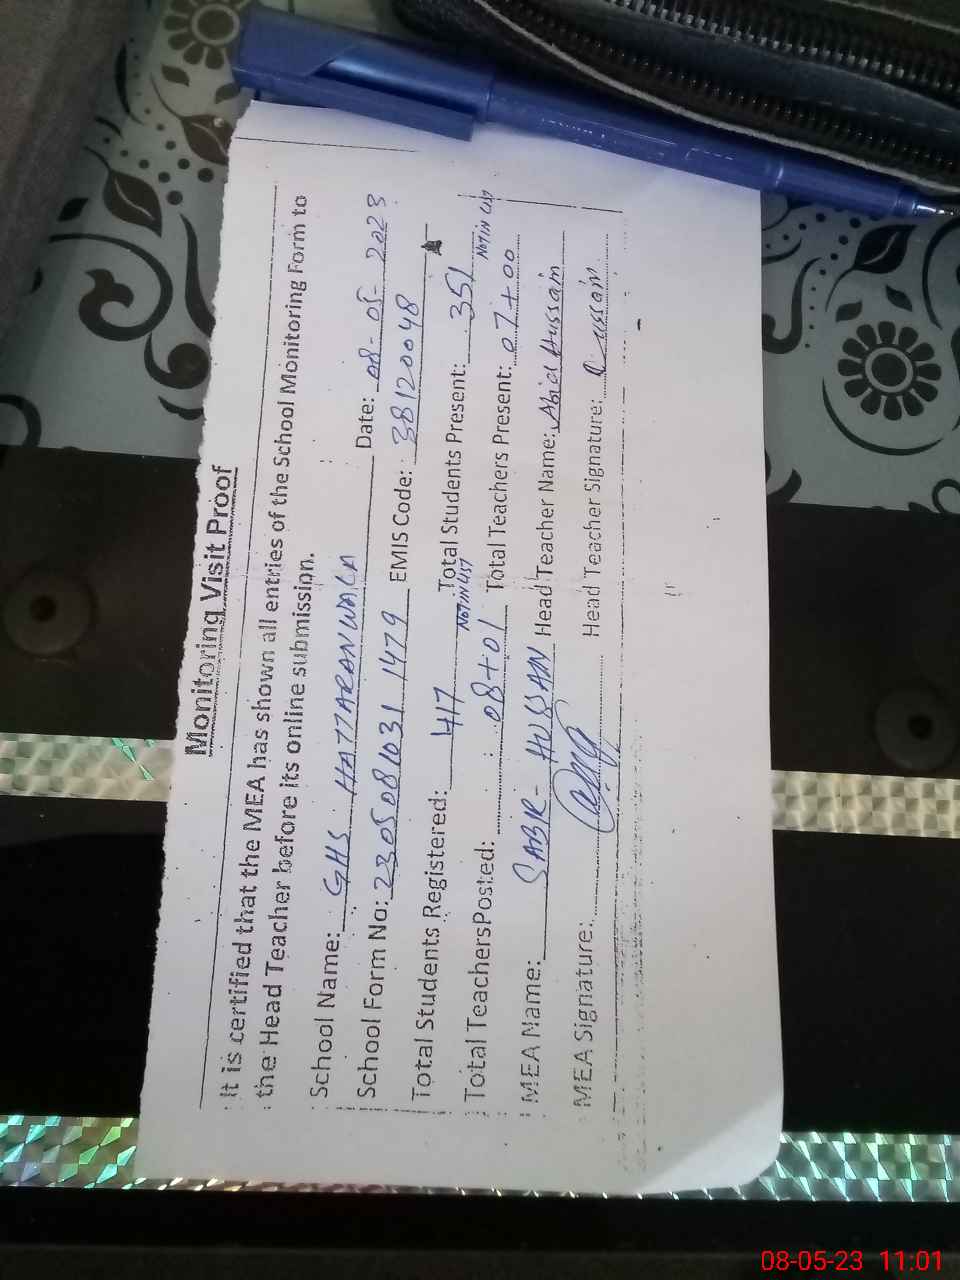 Monitoring Visit Proof
It is certified that the MEA has shown all entries of the School Monitoring Form to
the Head Teacher before its online submission.
School Name: GHS HATTARANWALA Date: 08-05-2023
School Form No: 230508 1031 1479 EMIS Code: 38120048
Total Students Registered: 417 Total Students Present: 351
NOT IN LIST NOT IN LIST
Total TeachersPosted: 08+01 Total Teachers Present: 07+00
MEA Name: SABIR-HUSSAIN Head Teacher Name: Abid Hussain
MEA Signature: Head Teacher Signature: Hussain
08-05-23 11:01